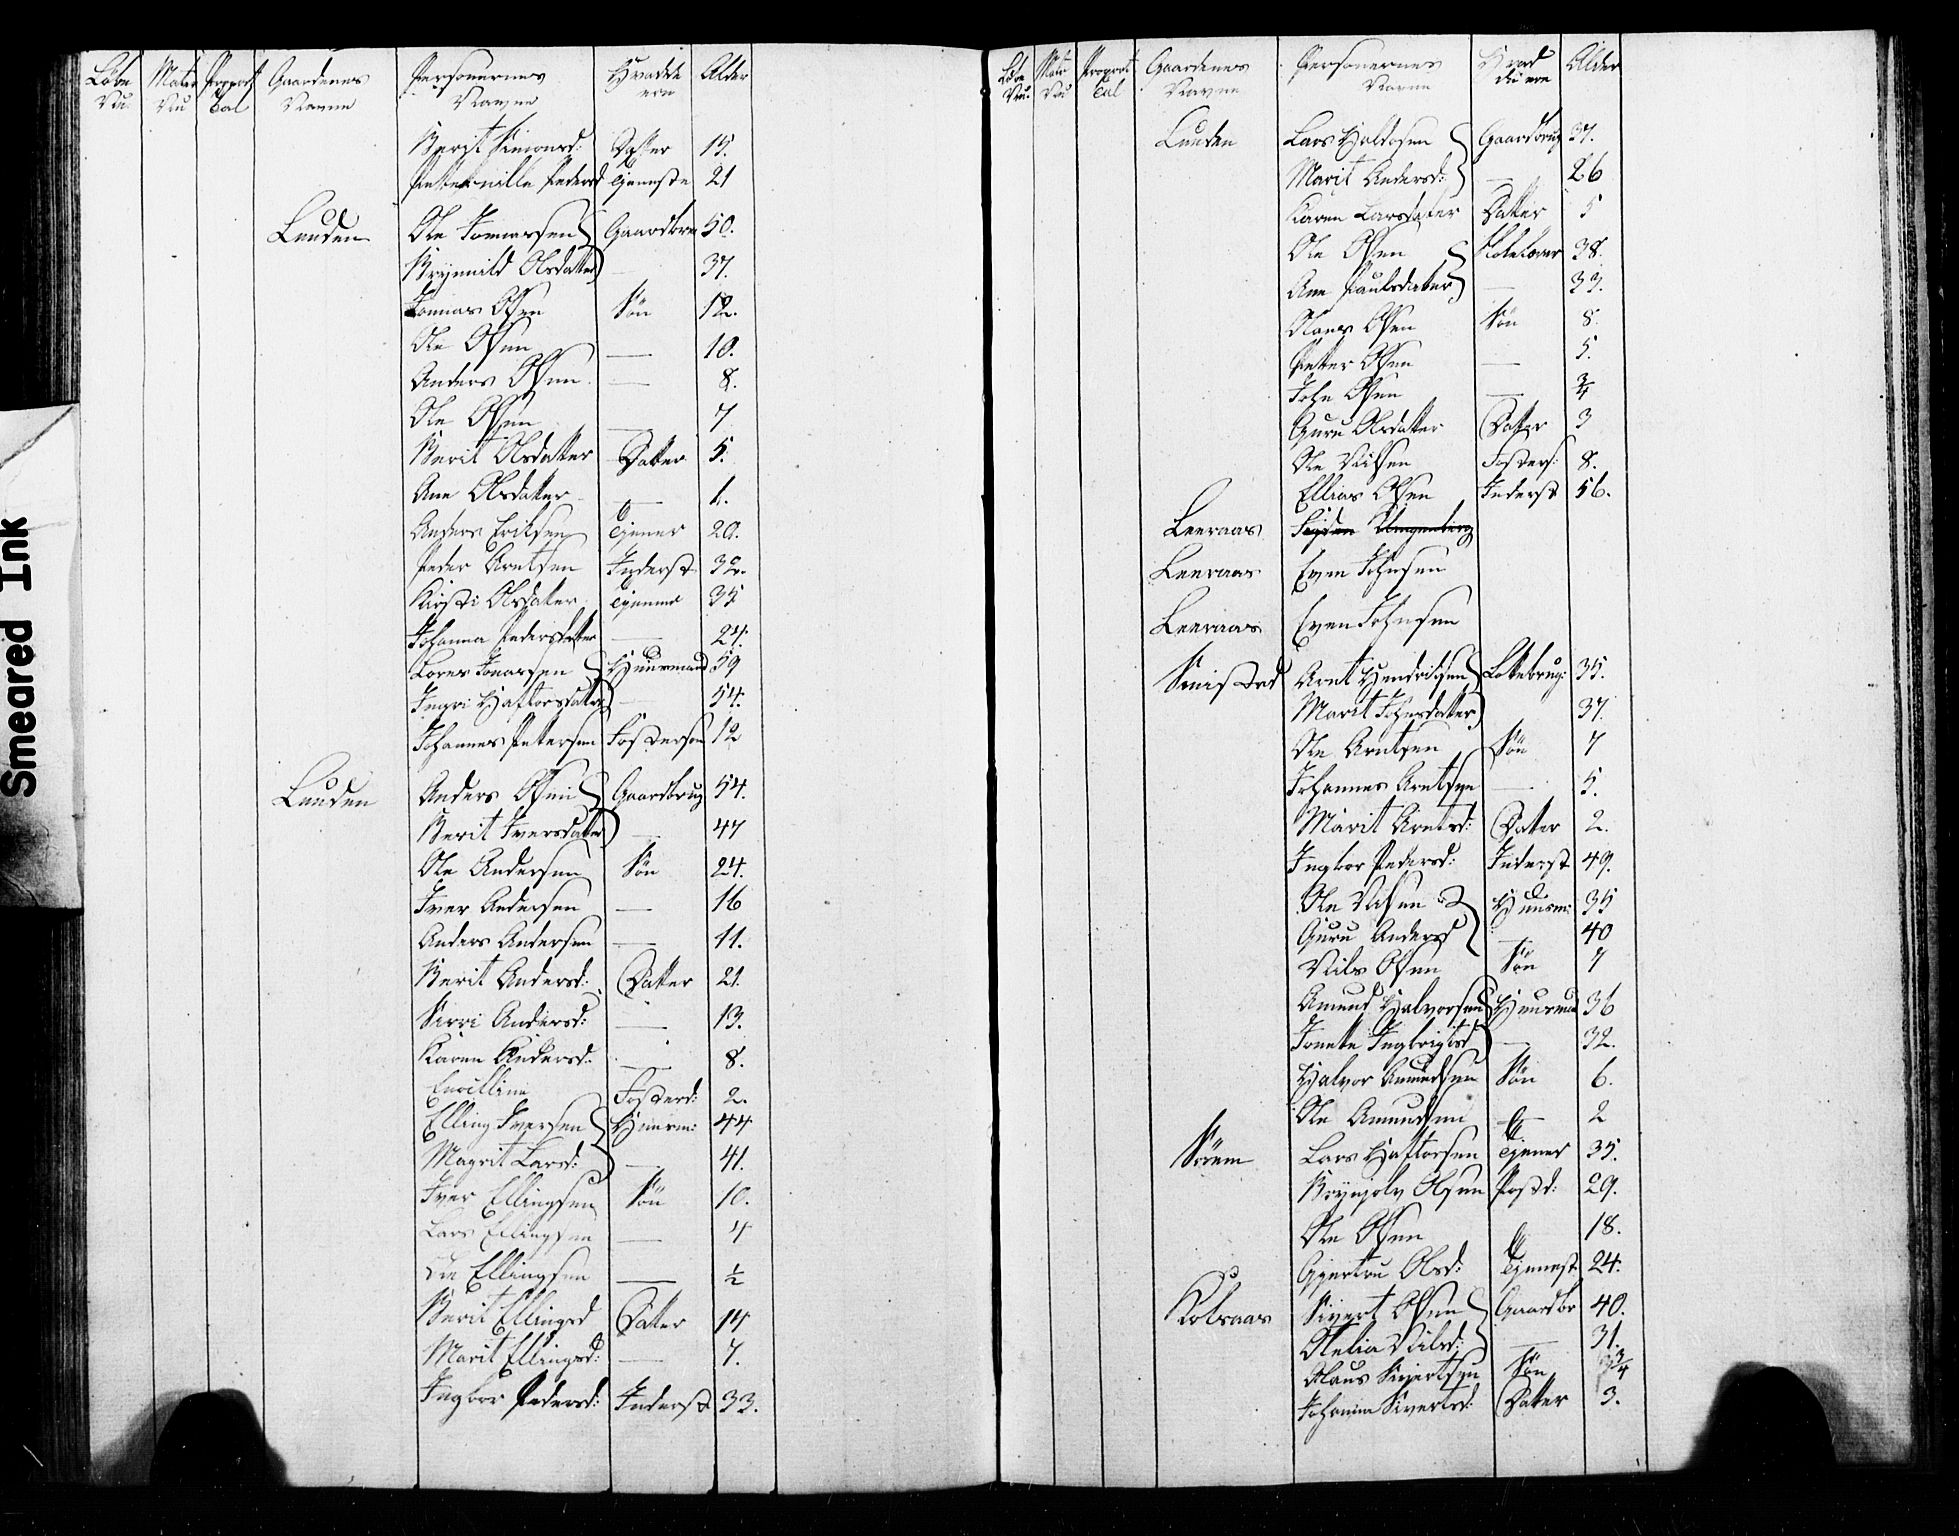 Smeared Ink
Løbe Nu. Matr Nu Proport Tal Gaardenes Navne Personernes Navne Hvad de ere Alder
Berit Simonsd: Datter 15.
Petternille Pedersd Tjeneste 21
Lunden Ole Jonnassen Gaardbru 50.
Brynnild Olsdatter — 37.
Jonnas Olsen Sön 12.
Ole Olsen — 10.
Anders Olsen — 8.
Ole Olsen — 7
Berit Olsdatter Datter 5.
Ane Olsdatter — 1.
Anders Eriksen Tjener 20.
Peder Arntsen Inderst 32.
Kirsti Olsdatter Tjenner 35
Johanna Pedersdatter — 24.
Lores Jonassen Huusmand 59
Ingri Haftorsdatter — 54.
Johannes Petersen Fosterson 12
Lunden Anders Olsen Gaardbrug 54.
Berit Iversdatter — 47
Ole Andersen Sön 24.
Iver Andersen — 16
Anders Andersen — 11.
Berit Andersd: Datter 21.
Sirri Andersd: — 13.
Karen Andersd: — 8.
Enocline Fosterd: 2.
Elling Iversen Huusm: 44
Magrit Larsd: — 41.
Iver Ellingsen Sön 10.
Lars Ellingsen — 4
Ole Ellingsen — ½
Berit Ellingsd Datter 14
Marit Ellingsd: — 7.
Ingbor Pedersd: Inderst 33.
Løbe Nu. Matr Nu Proport Tal Gaardenes Navne Personernes Navne Hvad die ere Alder
Lunden Lars Haldosen Gaardbrug 37.
Marit Andersd: — 26
Karen Larsdatter Datter 5
Ole Olsen Skolelærer 38.
Ane Paulsdatter — 33.
Olaus Olsen Sön 8.
Petter Olsen — 5.
John Olsen — ¾
Guru Olsdatter Datter 3
Ole Nilsen Fosters: 8.
Ellias Olsen Inderst 56.
Leeraas
Leeraas Even Johnsen
Leeraas Even Johnsen
Smistad Arnt Hendriksen Lottebrug: 35.
Marit Johnsdatter 37.
Ole Arntsen Sön 7
Johannes Arntsen — 5.
Marit Arntsd: Datter 2.
Ingbor Pedersd: Inderst 49.
Ole Nilsen Huusm: 35
Guru Andersd — 40
Nils Olsen Sön 7
Amund Halvorsen Huusmand 36
Jonetta Ingbrigtsd — 32.
Halvor Amundsen Sön 6.
Ole Amundsen — 2
Sörem Lars Haftorsen Tjener 35.
Brynjolv Olsen Postd: 29.
Ole Olsen 18.
Gjertru Olsd: Tjenest 24.
Kolsaas Sivert Olsen Gaardbr 40.
Olelia Nilsd: — 31.
Olaus Sivertsen Sön ¾
Johanna Sivertsd: Datter 3.